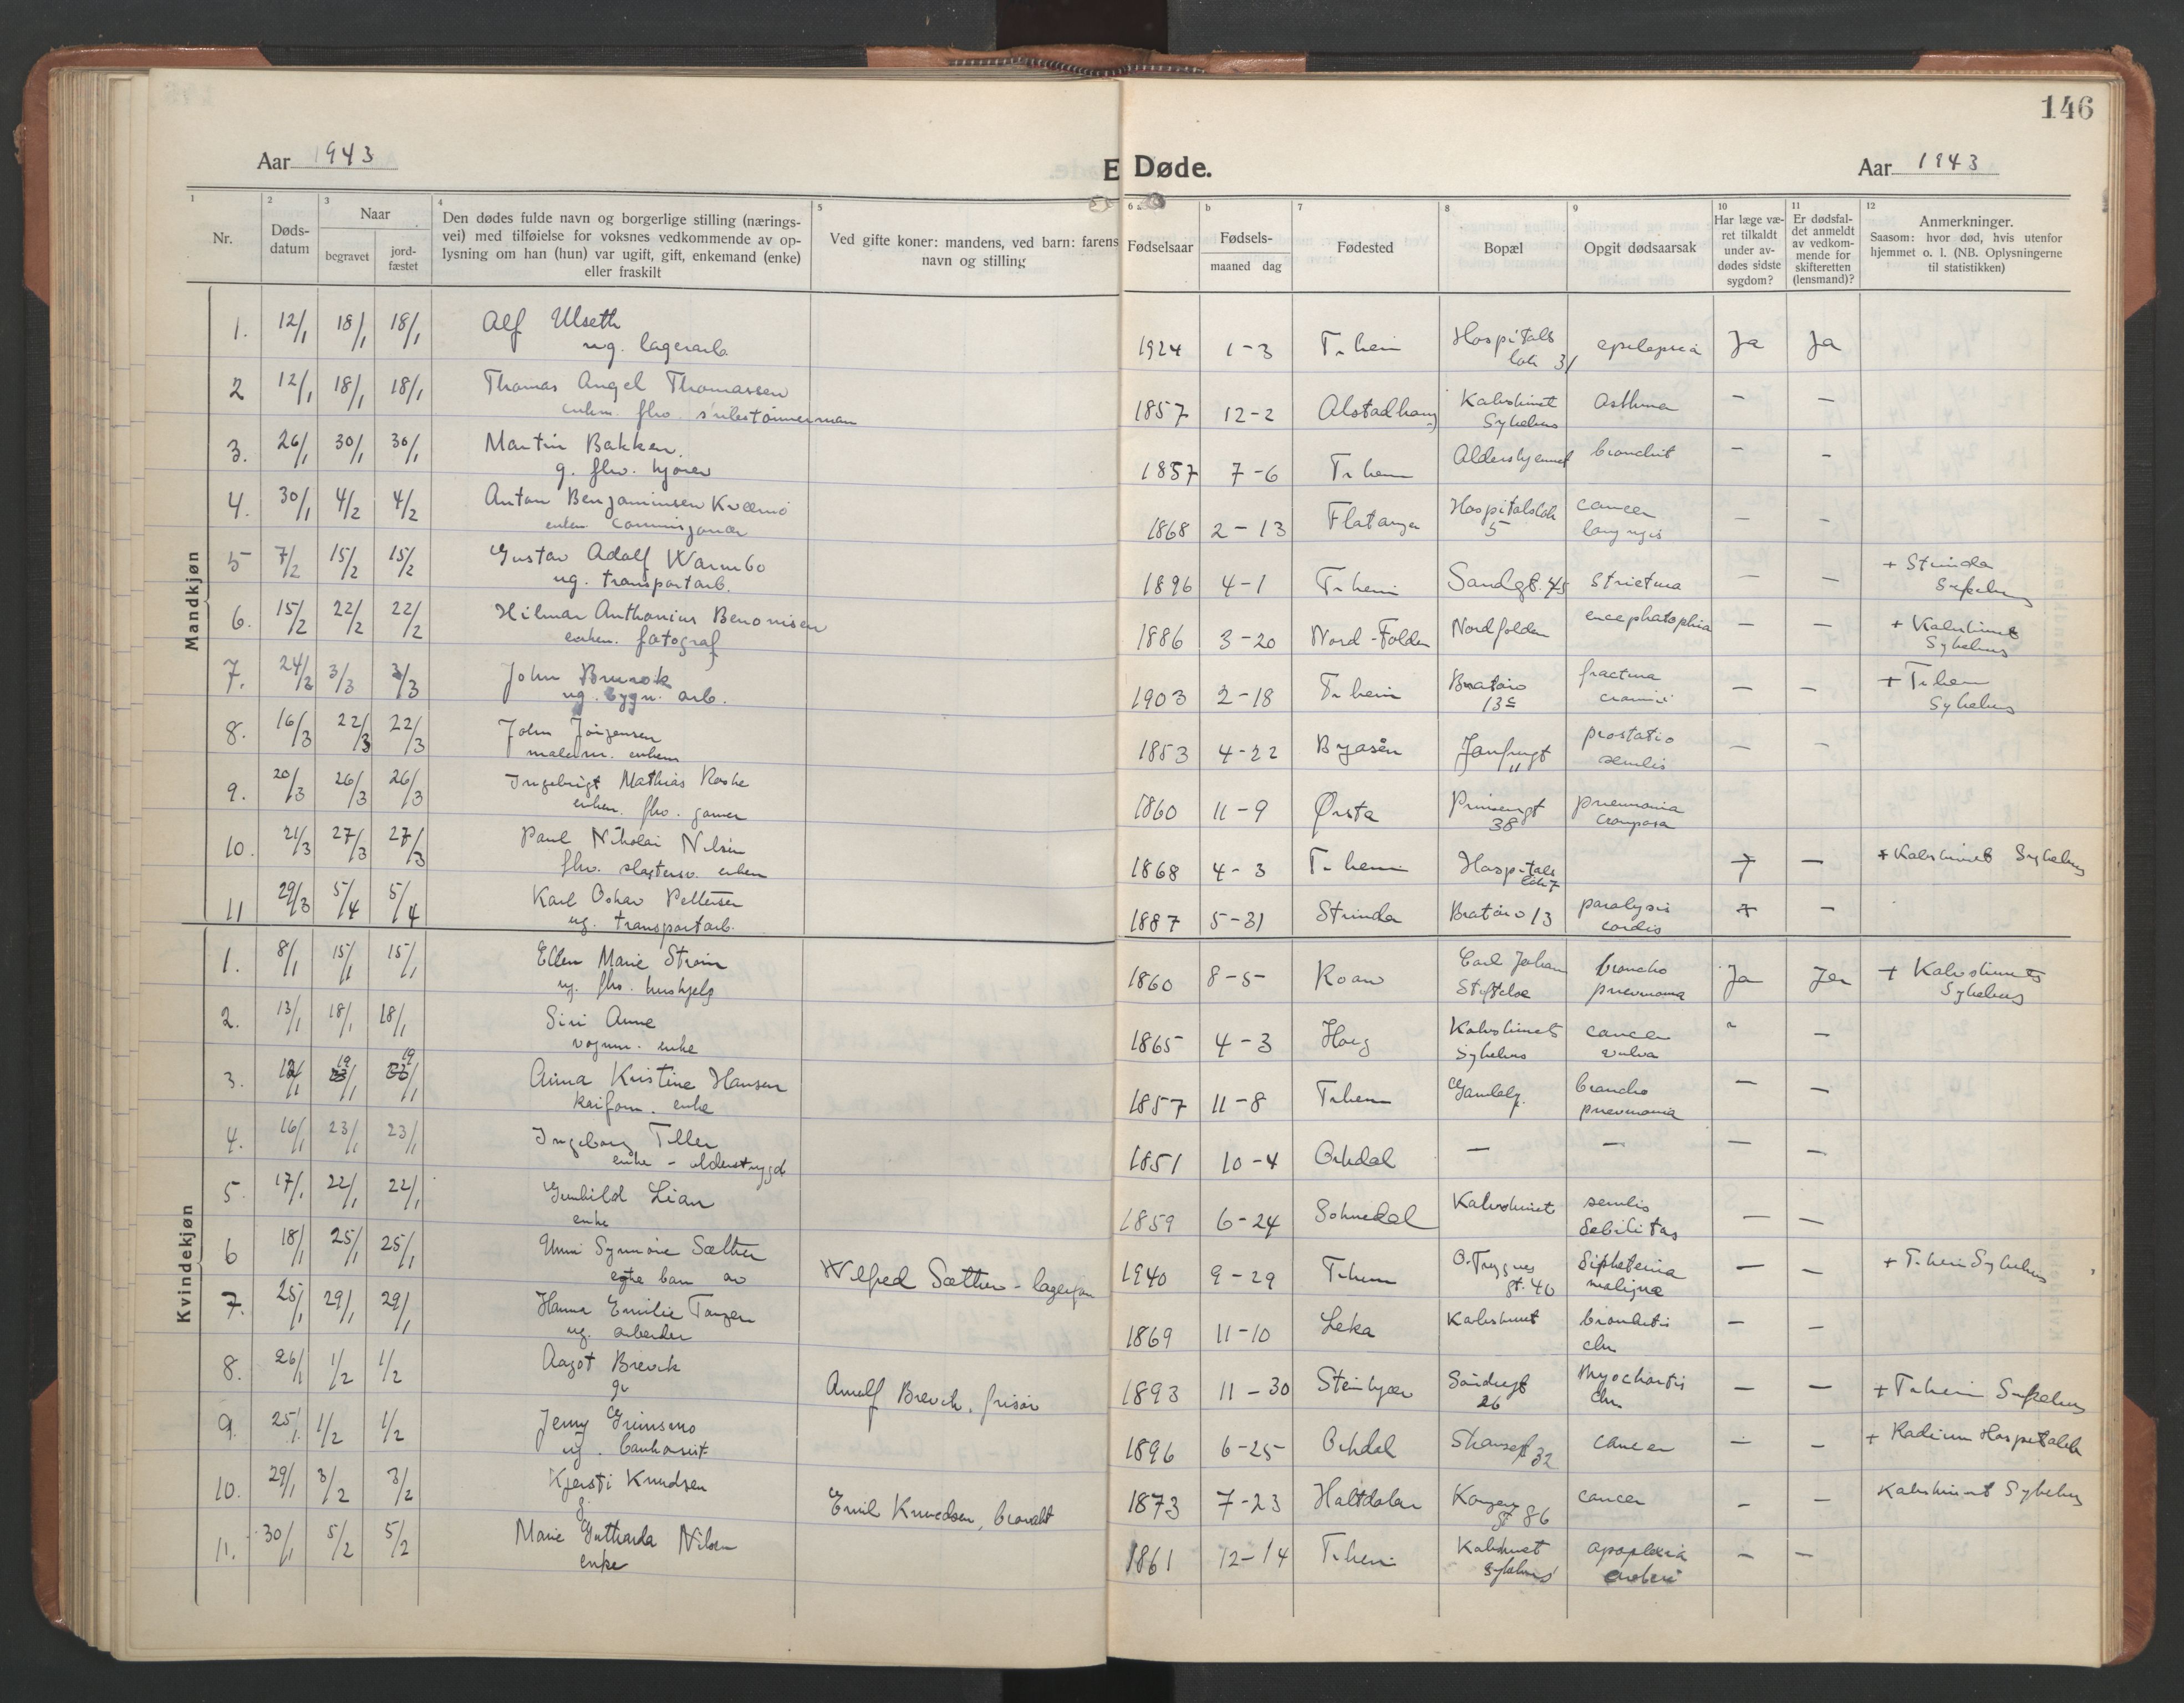 146
Aar 1943
E Døde.
Aar 1943
1 2 3 4 5 6 a b 7 8 9 10 11 12
Nr.
Døds-
datum
Naar
begravet
jord-
fæstet
Den dødes fulde navn og borgerlige stilling (nærings-
vei) med tilføielse for voksnes vedkommende av op-
lysning om han (hun) var ugift, gift, enkemand (enke)
eller fraskilt
Ved gifte koner: mandens, ved barn: farens
navn og stilling
Fødselsaar
Fødsels-
maaned dag
Fødested
Bopæl
Opgit dødsaarsak
Har læge væ-
ret tilkaldt
under av-
dødes sidste
sygdom?
Er dødsfal-
det anmeldt
av vedkom-
mende for
skifteretten
(lensmand)?
Anmerkninger.
Saasom: hvor død, hvis utenfor
hjemmet o. l. (NB. Oplysningerne
til statistikken)
Mandkjøn
1. 12/1 18/1 18/1 Alf Ulseth 1924 1-3 Tr.heim Hospitals epilepsia Ja Ja
ug. lagerarb 31
2 12/1 18/1 18/1 Thomas Angel Thomassen 1857 12-2 Alstadhaug Kalvskinnet Asthma — —
enkem. fhv. Sykehus
3. 26/1 30/1 30/1 Martin Bakken. 1857 7-6 Tr.heim Aldershjemmet bronchit — —
g. fhv. kjører
4. 30/1 4/2 4/2 Anton Benjaminsen Kværnø 1868 2-13 Flatanger Hospitalsløk cancer — —
enkem. 5 laryngis
5 7/2 15/2 15/2 Gustav Adolf Warmbo 1896 4-1 Tr.heim Sandgt. 45 Strictura — — + Strinda
ug. transportarb. Sykehus
6. 15/2 22/2 22/2 Hilmar Anthonius Benonisen 1886 3-20 Nord-Folden Nordfolden — — + Kalvskinnet
enkem. fotograf Sykehus
7. 24/2 3/3 3/3 John Brurok 1903 2-18 Tr.heim Bratørv fractura — — + Tr.heim
ug. bygn. arb. 13c cranii Sykehus
8. 16/3 22/3 22/3 John Jörgensen 1853 4-22 Byåsen 11 — —
malerm. enkem senilis
9. 20/3 26/3 26/3 Ingebrigt Mathias Roshe 1860 11-9 Ørsta Prinsensgt pneumonia
enkem. fhv. 38 crouposa
10. 21/3 27/3 27/3 Paul Nikolai Nilsen 1868 4-3 Tr.heim Hospitals + — + Kalvskinnet Sykehus
fhv. enkem 7
11 29/3 5/4 5/4 Karl Oskar Pettersen 1887 5-31 Strinda Bratørv 13 paralysis + —
ug. transportarb. cordis
Kvindekjøn
1. 8/1 15/1 15/1 Ellen Marie Strøm 1860 8-5 Roan Carl Johans broncho Ja Ja + Kalvskinnets
ug. fhv. hushjelp Stiftelse pneumonia Sykehus
2. 13/1 18/1 18/1 Siri Aune 1865 4-3 Horg Kalvskinnets cancer —
vognm. enke Sykehus vulva
3. 12/1 19/1 19/1 Anna Kristine Hansen 1857 11-8 Tr.heim broncho — —
enke pneumonia
4. 16/1 23/1 23/1 Ingeborg Tiller 1851 10-4 Orkdal — — — —
enke - alderstrygd
5. 17/1 22/1 22/1 Gunhild Lian 1859 6-24 Soknedal Kalvskinnet senilis — —
enke debilitas
6 18/1 25/1 25/1 Unni Synnøve Sæther Wilfred Sæther - 1940 9-29 Tr.heim O. Trygves diphteria — — + Tr.heim Sykehus
egte barn av gt. 40 maligna
7. 25/1 29/1 29/1 Hanna Emilie Tangen 1869 11-10 Leka Kalvskinnet bronchitis — —
ug. arbeider chr.
8. 26/1 1/2 1/2 Aagot Brevik Arnulf Brevik, frisør 1893 11-30 Steinkjer 26 — — + Tr.heim Sykehus
g chr.
9. 25/1 1/2 1/2 Jenny Grinsmo 1896 6-25 Orkdal 32 cancer — — + Radium Hospitalet
ug. bankassist
10. 29/1 3/2 3/2 Kjersti Knudsen Emil Knudsen, 1873 7-23 Haltdalen Kongens cancer — — Kalvskinnet Sykehus
g. gt 86
11. 30/1 5/2 5/2 Marie Nilsen 1861 12-14 Tr.heim Kalvskinnet apoplexia — —
enke Sykehus cerebri